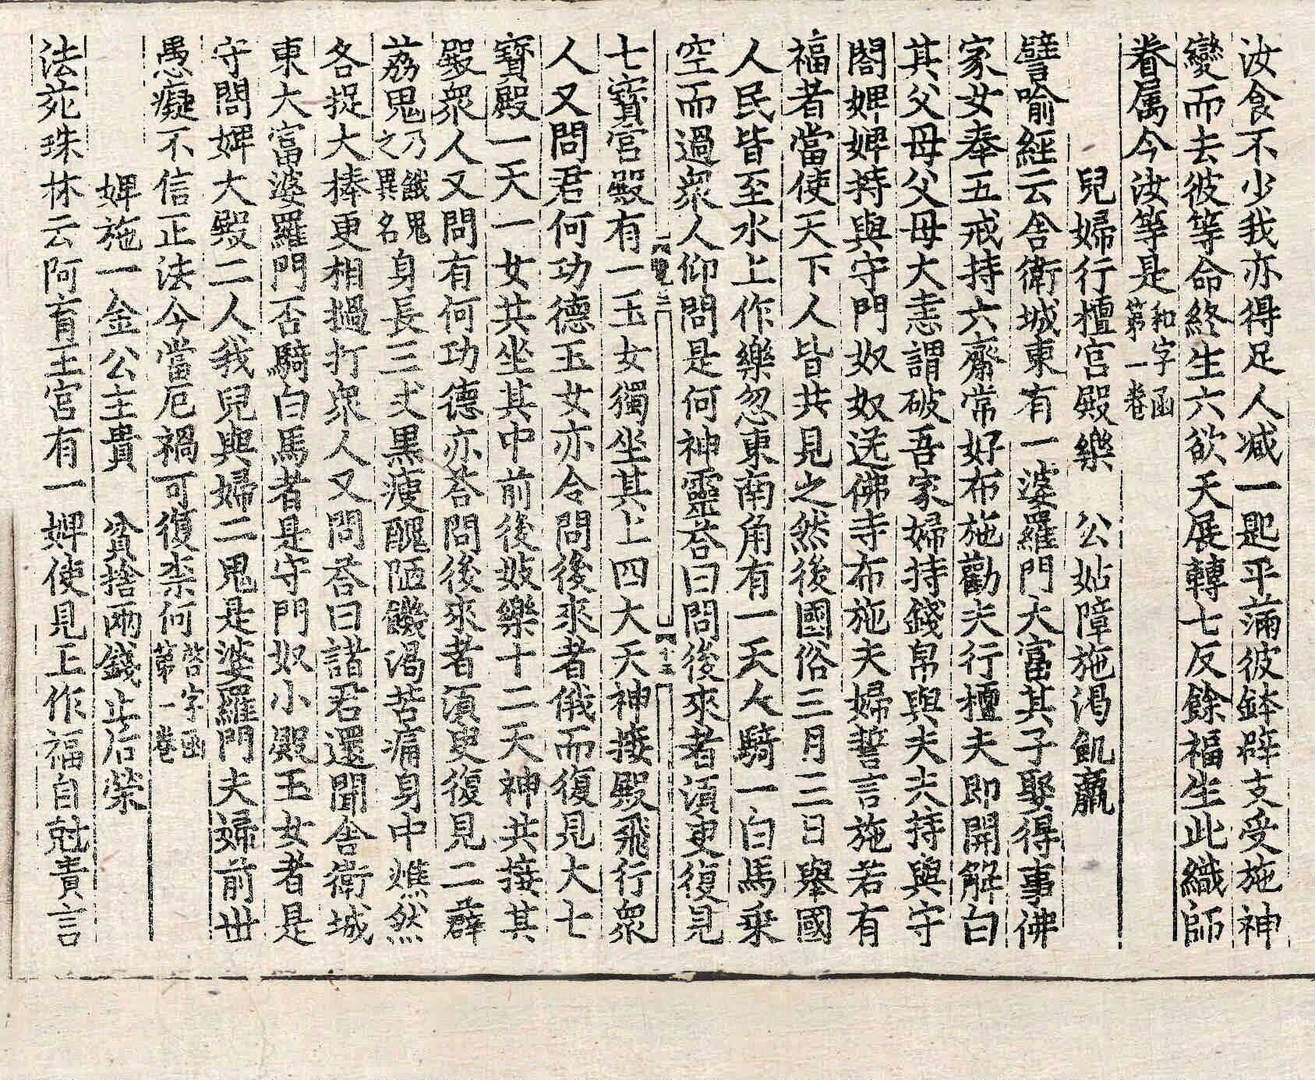 汝食不少我亦得足人减一匙平滿彼鉢辟支受施神
變而去彼等命終生六欲天展轉七反餘福生此織師
眷属今汝等是和字函第一卷
兒婦行檀宮殿樂 公姑障施渴飢羸
譬喻經云舍衛城東有一婆羅門大富其子娶得事佛
家女奉五戒持六齋常好布施勸夫行檀夫即開解白
其父母父母大恚謂破吾家婦持錢帛與夫夫持與守
閤婢婢持與守門奴奴送佛寺布施夫婦誓言施若有
福者當使天下人皆共見之然後國俗三月三日舉國
人民皆至水上作樂忽東南角有一天人騎一白馬乗
空而過衆人仰問是何神靈荅曰問後來者湏更復見
七寳宮殿有一玉女獨坐其上四大天神接殿飛行衆
人又問君何功德玉女亦令問後來者俄而復見大七
寳殿一天一女共坐其中前後妓樂十二天神共接其
殿衆人又問有何功德亦荅問後來者湏叟復見二薜
荔鬼乃餓鬼之異名身長三丈黒瘦醜陋饑渴苦痛身中燋然
各捉大棒更相撾打衆人又問荅曰諸君還聞舎衛城
東大富婆羅門否騎白馬者是守門奴小殿玉女者是
守閤婢大殿二人我兒與婦二鬼是婆羅門夫婦前丗
愚癡不信正法今當厄禍可復柰何啓字函第一卷
婢施一金公主貴 貧捨兩錢止后榮
法苑珠林云阿育王宮有一婢使見王作福自尅責言